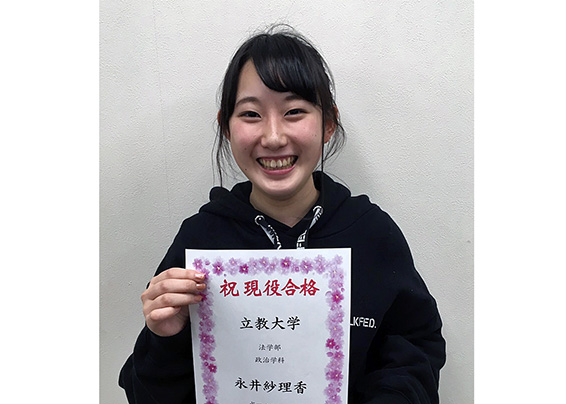 祝現役合格
立教大学
法学部
政治学科
永井紗理香
LKFIED.